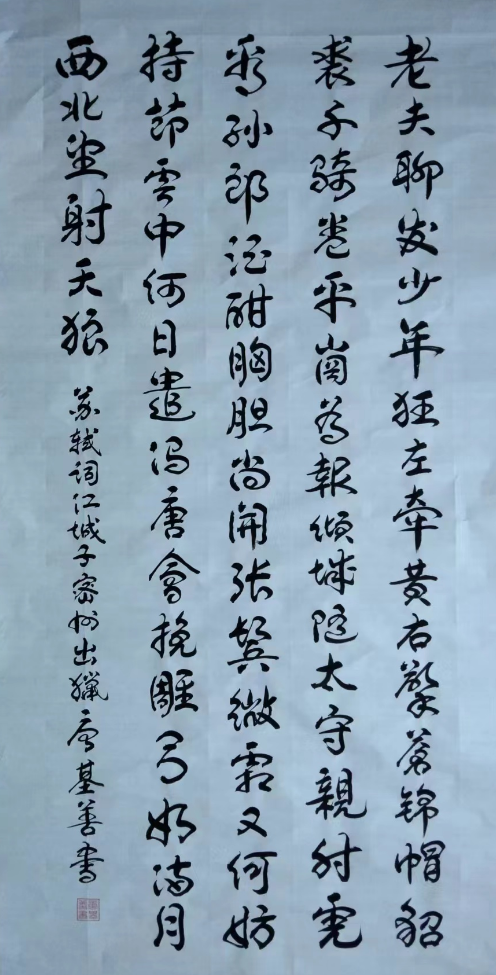 老夫聊发少年狂左牽黄右擎蒼锦帽貂
裘千骑卷平崗为報倾城随太守親射虎
看孙郎酒酣胸胆尚開张鬓微霜又何妨
持节雲中何日遣冯唐會挽雕弓如满月
西北望射天狼 苏轼词江城子密州出獵唐基善书